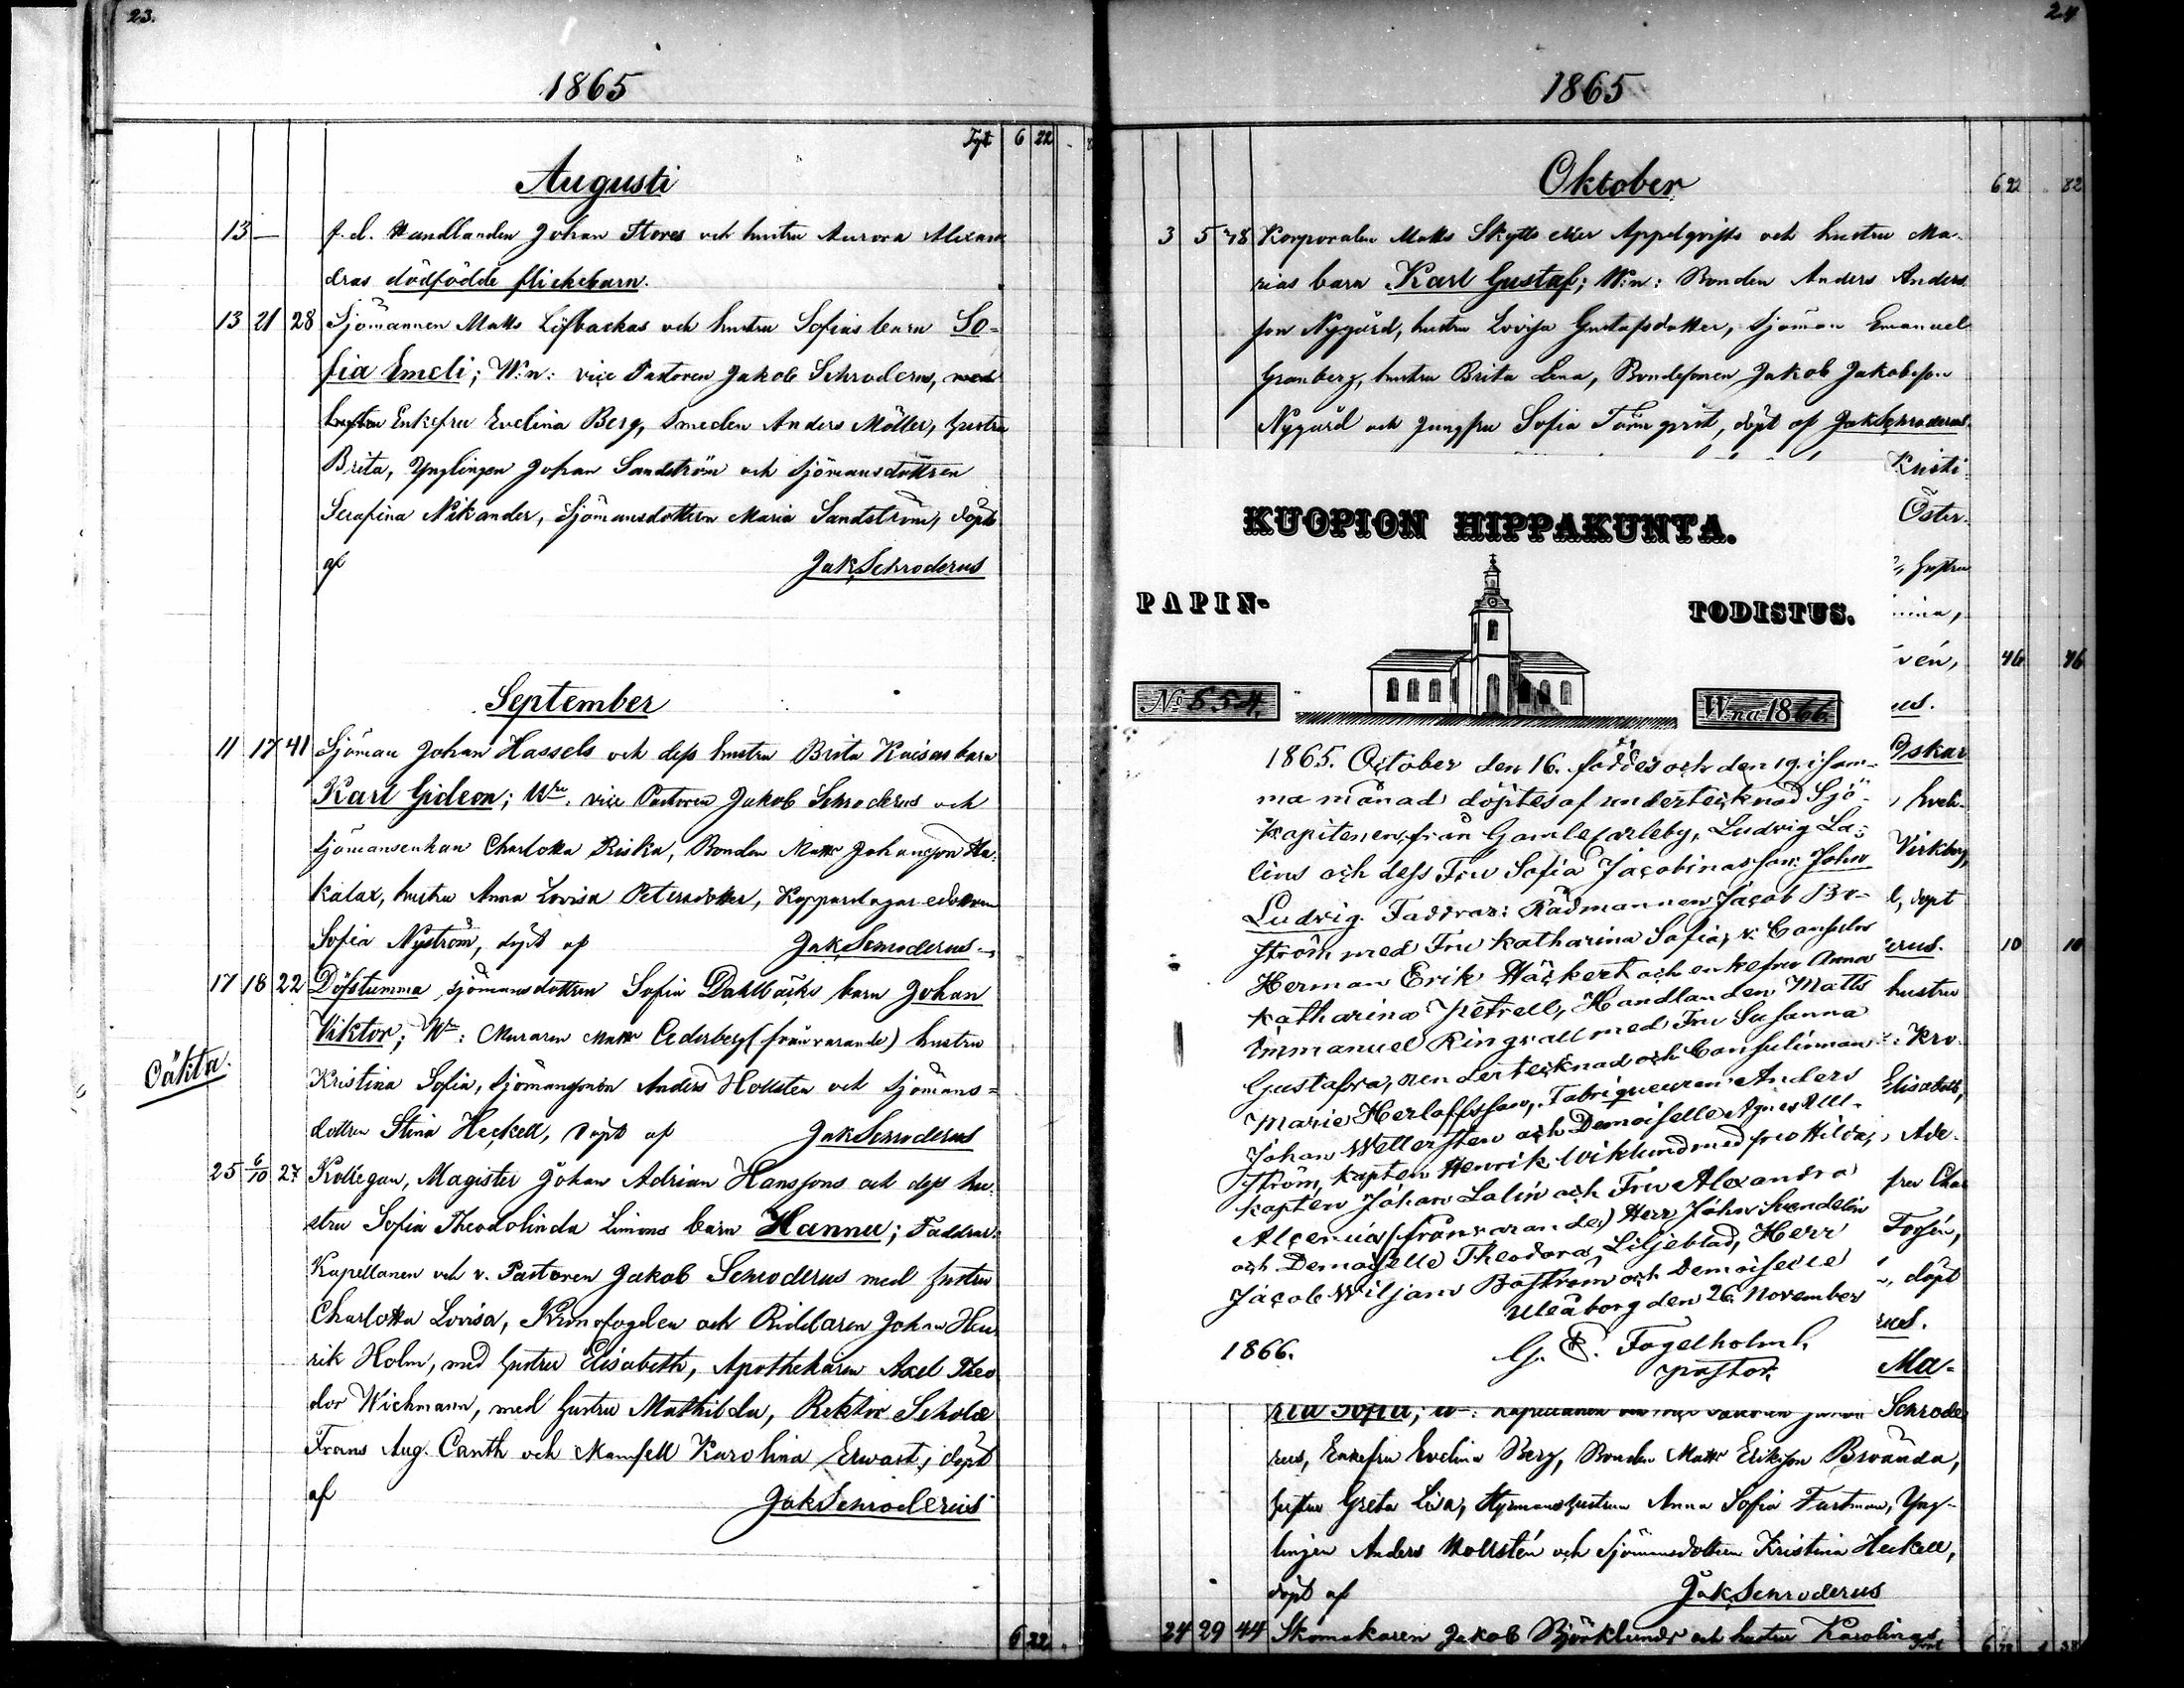 23.
1865
Fgt 6 22
Augusti
13 — f. d. Handlanden Johan Stores och hustru Aurora Alexan-
dras dödfödde flickebarn.
13 21 28 Sjömannen Matts Löfbackas och hustru Sofias barn So-
fia Emeli; W:n: vice Pastoren Jakob Schroderus, med
hustru Enkefru Evelina Berg, Smeden Anders Möller, hustru
Brita, Ynglingen Johan Sandström och Sjömansdottren
Serafina Nikander, Sjömansdottren Maria Sandström, döpt
af Jak Schroderus
September
11 17 41 Sjöman Johan Hassels och dess hustru Brita Kaisas barn
Karl Gideon; Wn. vice Pastoren Jakob Schroderus och
Sjömansenkan Charlotta Riska, Bonden Matts Johansson Ha-
kalax, hustru Anna Lovisa Petersdotter, Kopparslagaredottren
Sofia Nyström, döpt af Jak Schroderus
17 18 22 Döfstumma sjömansdottren Sofia Dahlbäcks barn Johan
Viktor; Wn: Muraren Matts Cederberg (frånvarande) hustru
Oäkta.
Kristina Sofia, Sjömanssonen Anders Hollsten och Sjömans=
dottren Stina Heckell, döpt af Jak Schroderus
25 6/10 27 Kollegan, Magister Johan Adrian Hanssons och dess hu-
stru Sofia Theodolinda Limons barn Hannu; Faddrar:
Kapellanen och v. Pastoren Jakob Schroderus med hustru
Charlotta Lovisa, Kronofogden och Riddaren Johan Hen-
rik Holm, med hustru Elisabeth, Apothekaren Axel Theo
dor Wichmann, med hustru Mathilda, Rektor Scholæ
Frans Aug. Canth och Mamsell Karolina Erwast, döpt
af Jak Schroderus
6 22
24
1865
Oktober
6 22 82
3 5 48 Korporalen Matts Skytts eller Appelqvists och hustru Ma-
rias barn Karl Gustaf; W:n: Bonden Anders Anders
son Nygård, hustru Lovisa Gustafsdotter, Sjöman Emanuel
Granberg, hustru Brita Lena, Bondesonen Jakob Jakobsson
Nygård och Jungfru Sofia Törnqvist, döpt af Jak Schroderus.
Kristi-
KUOPION HIPPAKUNTA.
Öster-
hustru
PAPIN- TODISTUS.
46 46
No 554. Wna 1866
us.
1865. October den 16. föddes och den 19. i sam-
ma månad döptes af undertecknad Sjö-
kapitenen från Gamlecarleby, Ludvig La-
lins och dess Fru Sofia Jacobinas son: John
Ludvig. Faddrar: Rådmannen Jacob Bo-
ström med Fru Katharina Sofia, v. Consuln
Herman Erik Häckert och enkefru Anna
Katharina Petrell, Handlanden Matts
Emmanuel Ringvall med Fru Susanna
Gustafva, undertecknad och Consulinnan
Marie Herlofssson, Fabriqueuren Anders
Johan Wellersten och Demoiselle Agnes Ull-
ström, Kapten Henrik Wiklund med fru Hilda,
Kapten Johan Lalin och Fru Alexandra
Alcenia (frånvarande) Herr John Svendelin
och Demoiselle Theodora Liljeblad, Herr
Jacob Wiljam Boström och Demoiselle
Uleåborg den 26. November
1866.
G. E. Fogelholm.
pastor.
Oskar
Virkberg,
döpt
erus. 10 10
hustru
Kro-
Elisabeth,
Ade-
fru Cha
Forsén,
döpt
rus.
Ma-
ria Sofia; Schrode
rus, Enkefru Evelina Berg, Bonden Matts Eriksson Brvånda,
hustru Greta Lisa, Styrmanshustrun Anna Sofia Furtman, Yng-
lingen Anders Hollstén och Sjömansdottren Kristina Heckell,
döpt af Jak Schroderus
24 29 44 Skomakaren Jakob Björklunds och hustru Karolinas